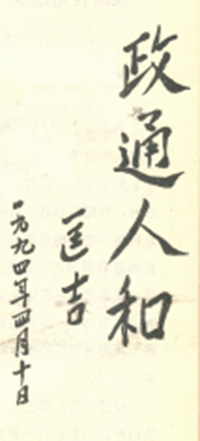 政通人和
匡吉
一九九四年四月十日